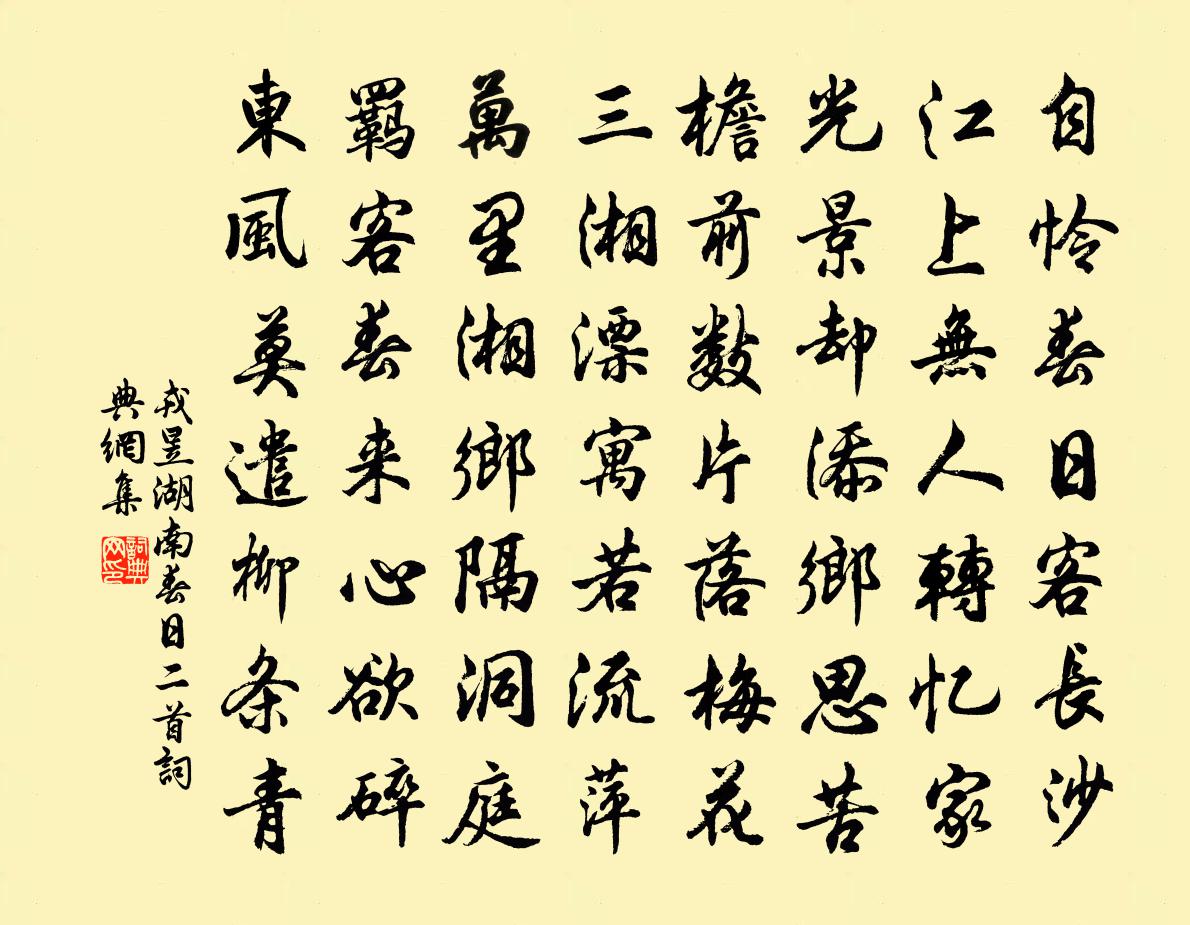 自怜春日客長沙
江上無人轉忆家
光景却添鄉思苦
檐前數片落梅花
三湘漂寓若流萍
萬里湘鄉隔洞庭
羈客春来心欲碎
東風莫遣柳条青
戎昱湖南春日二首詞
典網集
詞典
网印